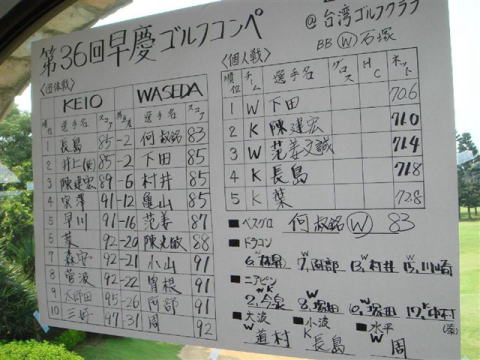 第36回早慶ゴルフコンペ
@台湾ゴルフクラブ
BB Ⓦ 石塚
〈団体戦〉
KEIO WASEDA
順位 選手名 スコア 選手名 スコア
1 長島 85 -2 何叔銘 83
2 井上 85 -2 下田 85
3 陳建宏 89 -6 村井 85
4 91 -12 亀山 85
5 早川 91 -16 范姜 87
6 葉 92 -20 陳 88
7 森安 92 -21 小山 91
8 菅波 92 -22 曽根 91
9 95 -26 阿部 91
10 三好 97 -31 周 92
〈個人戦〉
順位 チーム 選手名 グロス HC ネット
1 W 下田 70.6
2 K 陳建宏 71.0
3 W 范姜文誠 71.4
4 K 長島 71.8
5 K 葉 72.8
■ベスグロ 何叔銘 Ⓦ 83
■ドラコン
6. 7. W 阿部 13. W 村井 15. 川崎
■ニアピン
2. 今泉 8. 塚田 12. 塚田 17. 中村
■大波 ■小波 ■水平
W 道村 K 長島 W 周